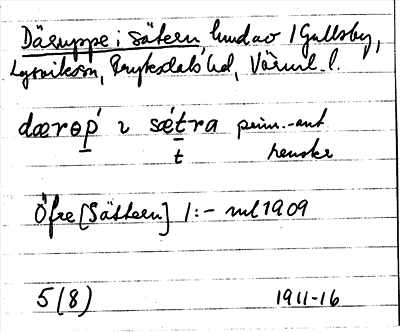 Däruppe i sätern, hmd av 1 Gullsby,
Lysviks sn, Fryksdals hd, Värml. l.
dærɵp̲´ ɿ sét̲ra prim.-ant
t
Öfre [Sättern] 1:– ml 1909
5(8) 1911-16